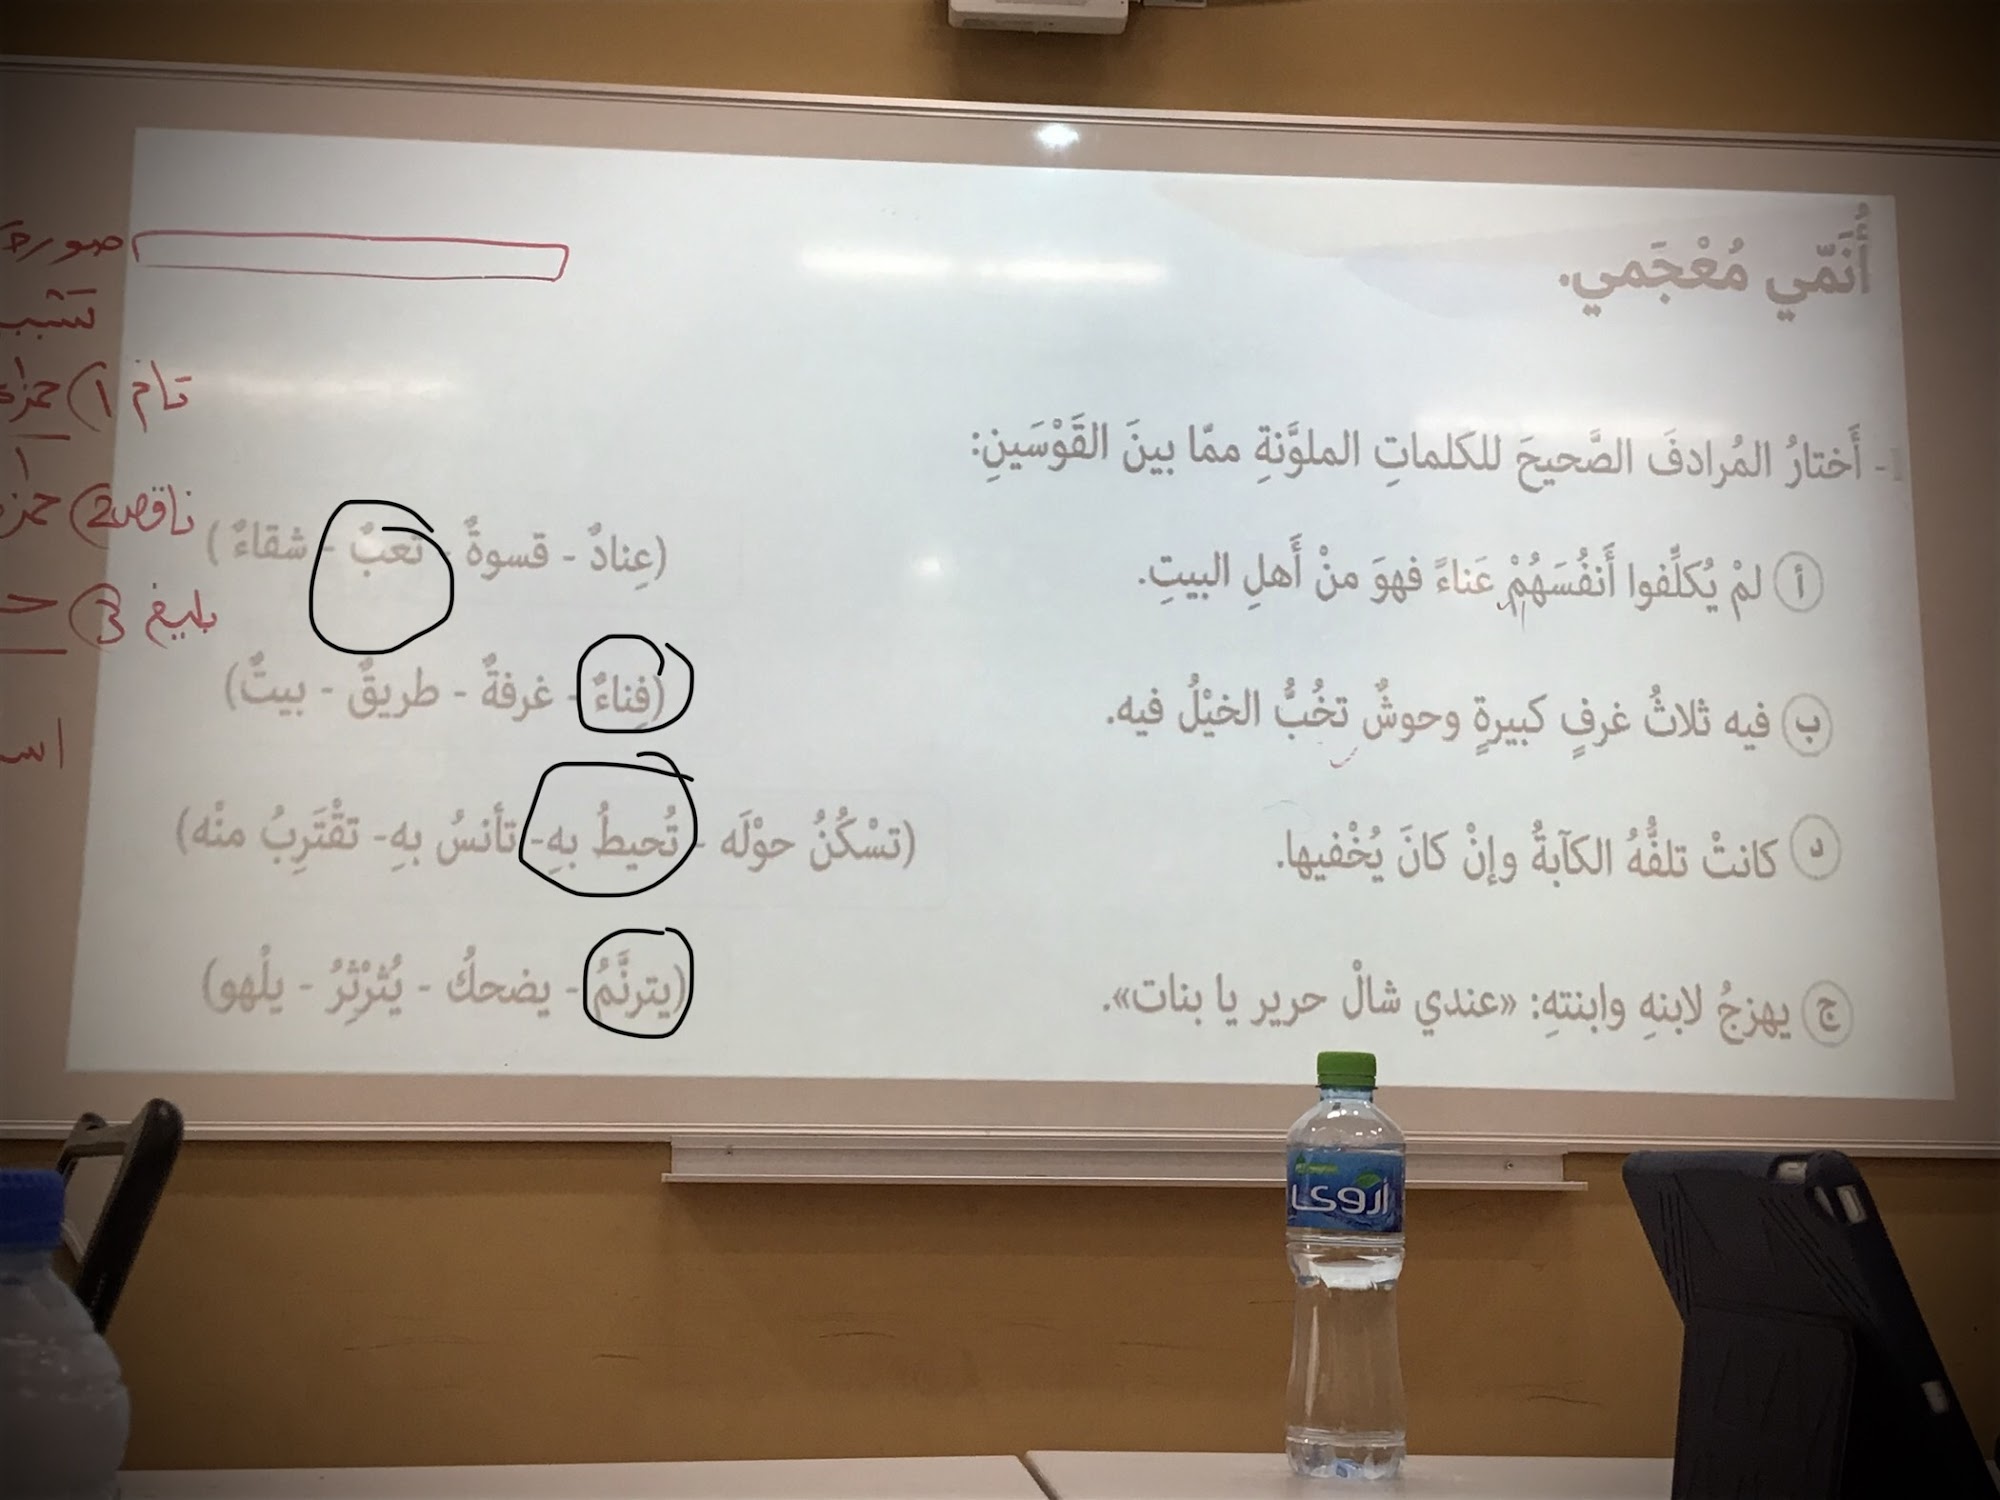 أُنمّي مُعْجَمي.
- أَختارُ المُرادفَ الصَّحيحَ للكَلماتِ الملوَّنةِ ممّا بينَ القَوْسَينِ:
أ لمْ يُكلِّفوا أَنفُسَهُمْ عَناءً فهوَ منْ أَهلِ البيتِ. (عِنادٌ - قسوةٌ - تعبٌ - شقاءٌ)
ب فيه ثلاثُ غرفٍ كبيرةٍ وحوشٌ تخُبُّ الخيْلُ فيه. (فِناءٌ - غرفةٌ - طريقٌ - بيتٌ)
د كانتْ تلفُّهُ الكآبةُ وإنْ كانَ يُخْفيها. (تسْكُنُ حوْلَه - تُحيطُ بهِ - تأنسُ بهِ - تقْتَرِبُ منْه)
ج يهزجُ لابنهِ وابنتهِ: «عندي شالْ حرير يا بنات». (يترنَّمُ - يضحكُ - يُثرْثِرُ - يلْهو)
صورة
تام ١
ناقص 2
بليغ 3
أروى